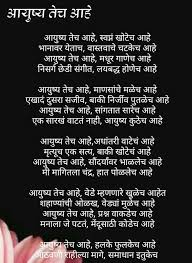 आयुष्य तेच आहे
आयुष्य तेच आहे, स्वप्नं खोटेच आहे
भानावर येताच, वास्तवाचे चटकेच आहे
आयुष्य तेच आहे, मधूर गाणेच आहे
निसर्ग छेडी संगीत, लयबद्ध होणेच आहे
आयुष्य तेच आहे, माणसांचे मळेच आहे
एखादं दुसरा सजीव, बाकी निर्जीव पुतळेच आहे
आयुष्य तेच आहे, सांगतात सारेच आहे
एक सारखं वाटतं नाही, आयुष्य कुठेच आहे
आयुष्य तेच आहे,अधांतरी वाटेचं आहे
मृत्यूच एक सत्य, बाकी खोटेच आहे
आयुष्य तेच आहे, सौंदर्यावर भाळलेच आहे
मी मागितला चंद्र, हात पोळलेच आहे
आयुष्य तेच आहे, वेडे म्हणणारे खुळेच आहेत
शहाण्यांची ओळख, वेड्यां मुळेच आहे
आयुष्य तेच आहे, प्रश्न वाकडेच आहे
मनाला जे पटतं, मेंदूसाठी कोडेच आहे
आयुष्य तेच आहे, हलके फुलकेच आहे
आठवणी राहील्या मागे, समाधान इतुकेच